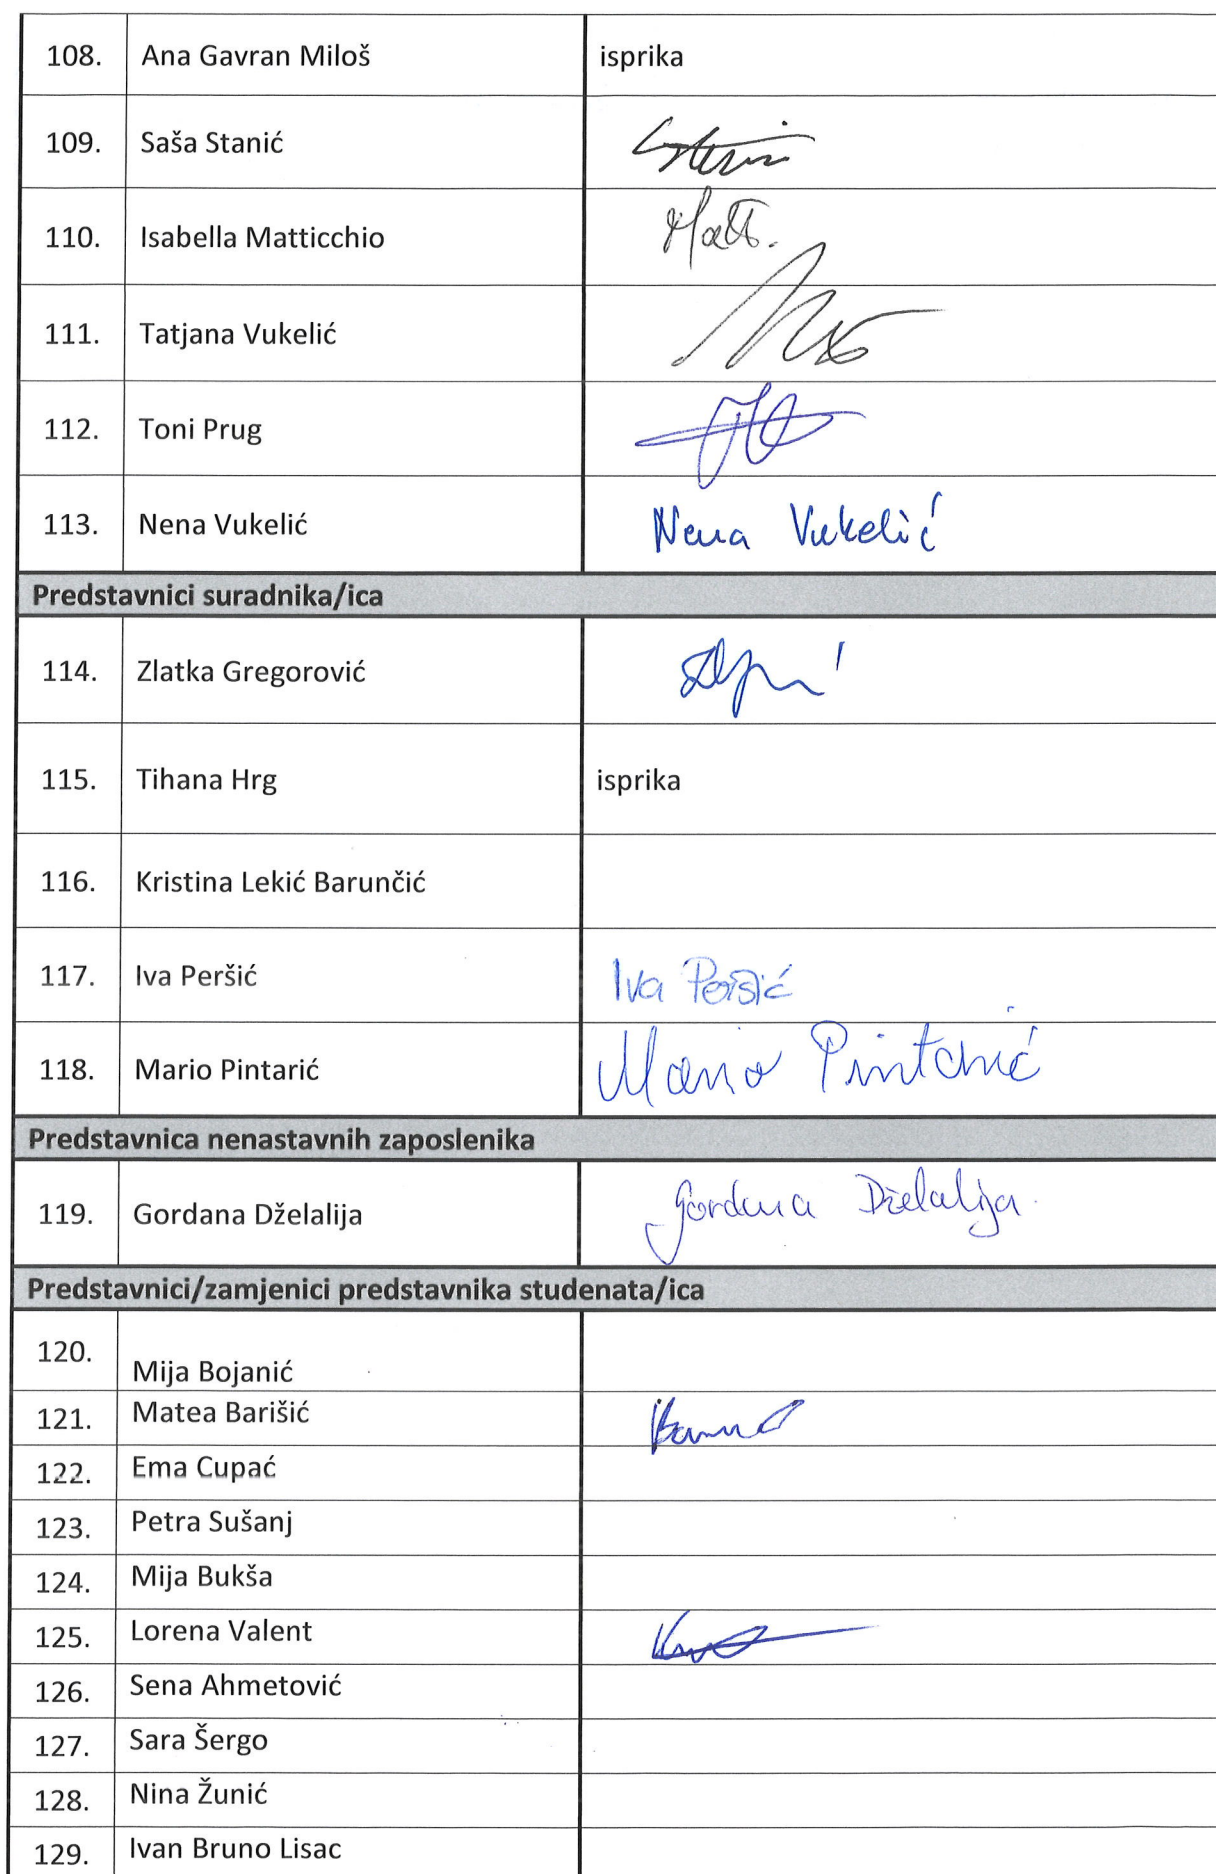 108. Ana Gavran Miloš isprika
109. Saša Stanić
110. Isabella Matticchio Matt.
111. Tatjana Vukelić
112. Toni Prug
113. Nena Vukelić Nena Vukelić
Predstavnici suradnika/ica
114. Zlatka Gregorović
115. Tihana Hrg isprika
116. Kristina Lekić Barunčić
117. Iva Peršić Iva Peršić
118. Mario Pintarić Mario Pintarić
Predstavnica nenastavnih zaposlenika
119. Gordana Dželalija Gordana Dželalija
Predstavnici/zamjenici predstavnika studenata/ica
120. Mija Bojanić
121. Matea Barišić
122. Ema Cupać
123. Petra Sušanj
124. Mija Bukša
125. Lorena Valent
126. Sena Ahmetović
127. Sara Šergo
128. Nina Žunić
129. Ivan Bruno Lisac